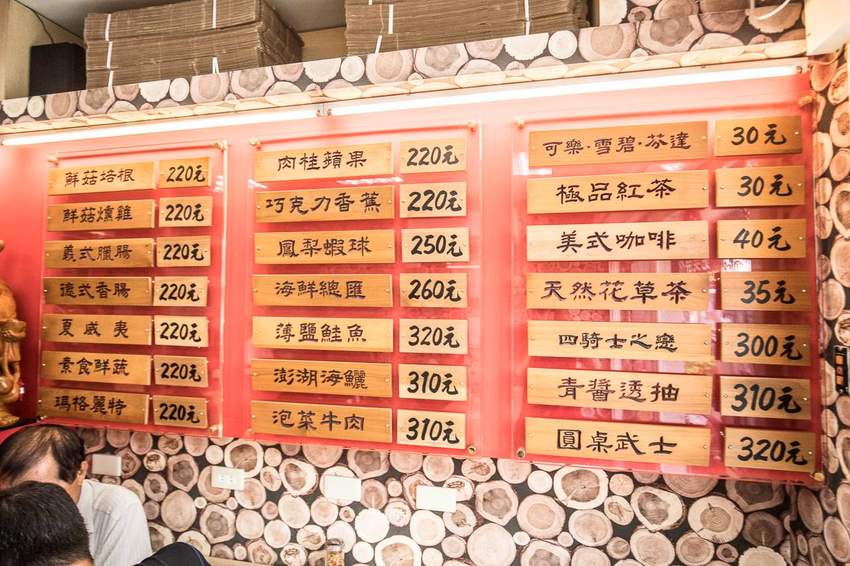 鮮菇培根 220元
鮮菇燻雞 220元
義式臘腸 220元
德式香腸 220元
夏威夷 220元
素食鮮蔬 220元
瑪格麗特 220元
肉桂蘋果 220元
巧克力香蕉 220元
鳳梨蝦球 250元
海鮮總匯 260元
薄鹽鮭魚 320元
澎湖海鱺 310元
泡菜牛肉 310元
可樂·雪碧·芬達 30元
極品紅茶 30元
美式咖啡 40元
天然花草茶 35元
四騎士之戀 300元
青醬透抽 310元
圓桌武士 320元